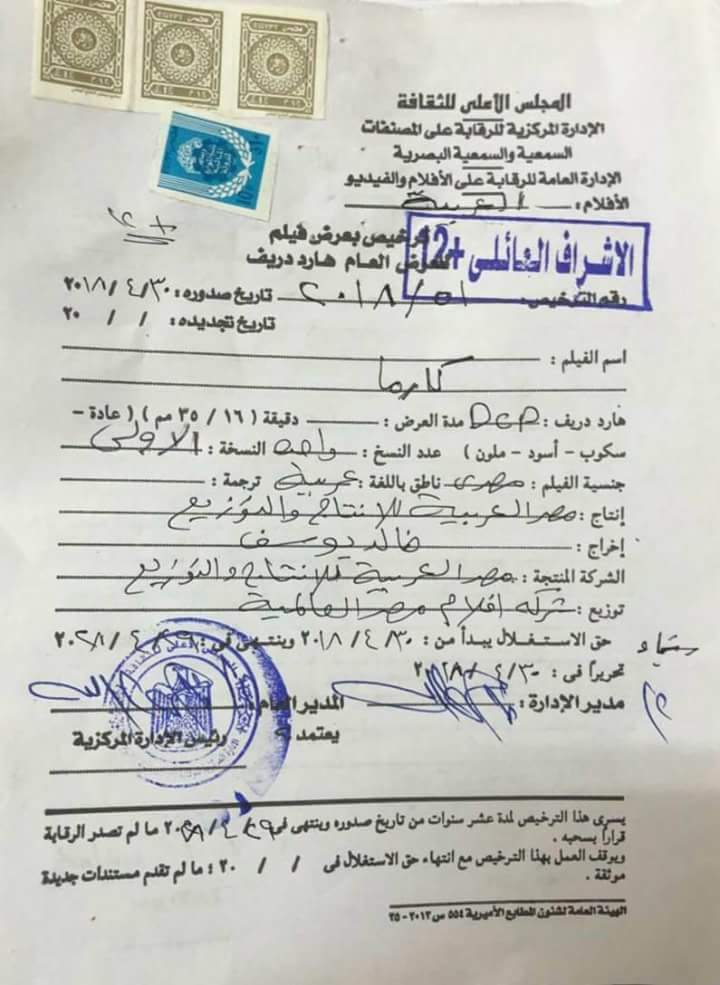 المجلس الأعلى للثقافة
الإدارة المركزية للرقابة على المصنفات
السمعية والسمعية البصرية
الإدارة العامة للرقابة على الأفلام والفيديو
الأفلام : العربية
ترخيص بعرض فيلم
الاشراف العائلى +12
للعرض العام هارد دريف
رقم الترخيص : ٢٠١٨/٥١ تاريخ صدوره : ٣٠ / ٤ / ٢٠١٨
تاريخ تجديده : / / ٢٠
اسم الفيلم :
كارما
هارد دريف : DCP مدة العرض : دقيقة ( ١٦ / ٣٥ مم ) ( عادة -
سكوب - أسود - ملون ) عدد النسخ : واحدة النسخة : الاولى
جنسية الفيلم : مصرى ناطق باللغة : عربية ترجمة :
إنتاج : مصر العربية للانتاج والتوزيع
إخراج : خالد يوسف
الشركة المنتجة : مصر العربية للانتاج والتوزيع
توزيع : شركه افلام مصر العالمية
حق الاستغلال يبدأ من : ٣٠ / ٤ / ٢٠١٨ وينتهى فى : ٢٩ / ٤ / ٢٠٢٨
تحريراً فى : ٣٠ / ٤ /
مدير الإدارة : المدير العام :
يعتمد
رئيس الإدارة المركزية
يسرى هذا الترخيص لمدة عشر سنوات من تاريخ صدوره وينتهى فى ٢٩ / ٤ / ٢٠٢٨ ما لم تصدر الرقابة
قراراً بسحبه .
ويوقف العمل بهذا الترخيص مع انتهاء حق الاستغلال فى / / ٢٠ : ما لم تقدم مستندات جديدة
موثقة .
الهيئة العامة لشئون المطابع الأميرية ٥٥٤ س ٢٠١٣ - ٢٥